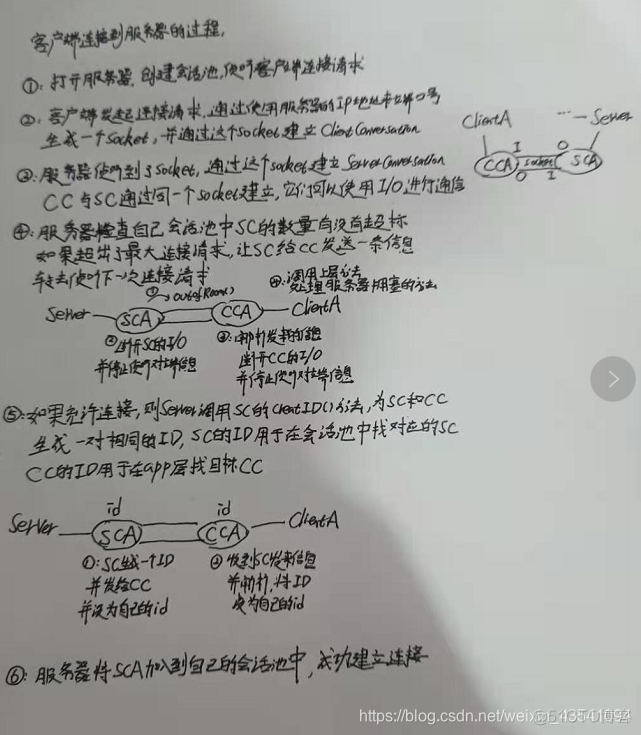 客户端连接到服务器的过程.
①: 打开服务器, 创建会话池, 侦听客户端连接请求
②: 客户端发起连接请求, 通过使用服务器的IP地址和端口号
生成一个Socket, 并通过这个Socket建立Client Conversation
ClientA ... Server
CCA I O socket O I SCA
③: 服务器侦听到了Socket, 通过这个socket建立Server Conversation
CC与SC通过同一个socket建立, 它们可以使用I/O, 进行通信
④: 服务器检查自己会话池中SC的数量有没有超标
如果超出了最大连接请求, 让SC给CC发送一条信息
转去侦听下一次连接请求
① → outofRoom()
④: 调用上层方法
处理服务器拥塞的方法
Server SCA CCA ClientA
②断开SC的I/O
并停止侦听对端信息
③: 解析发来的信息
断开CC的I/O
并停止侦听对端信息
⑤: 如果允许连接, 则Server调用SC的creatID()方法, 为SC和CC
生成一对相同的ID, SC的ID用于在会话池中找对应的SC
CC的ID用于在app层找目标CC
id id
Server SCA CCA ClientA
①: SC生成一个ID
并发给CC
并设为自己的id
②收到SC发来信息
并解析, 将ID
设为自己的id
⑥: 服务器将SCA加入到自己的会话池中, 成功建立连接